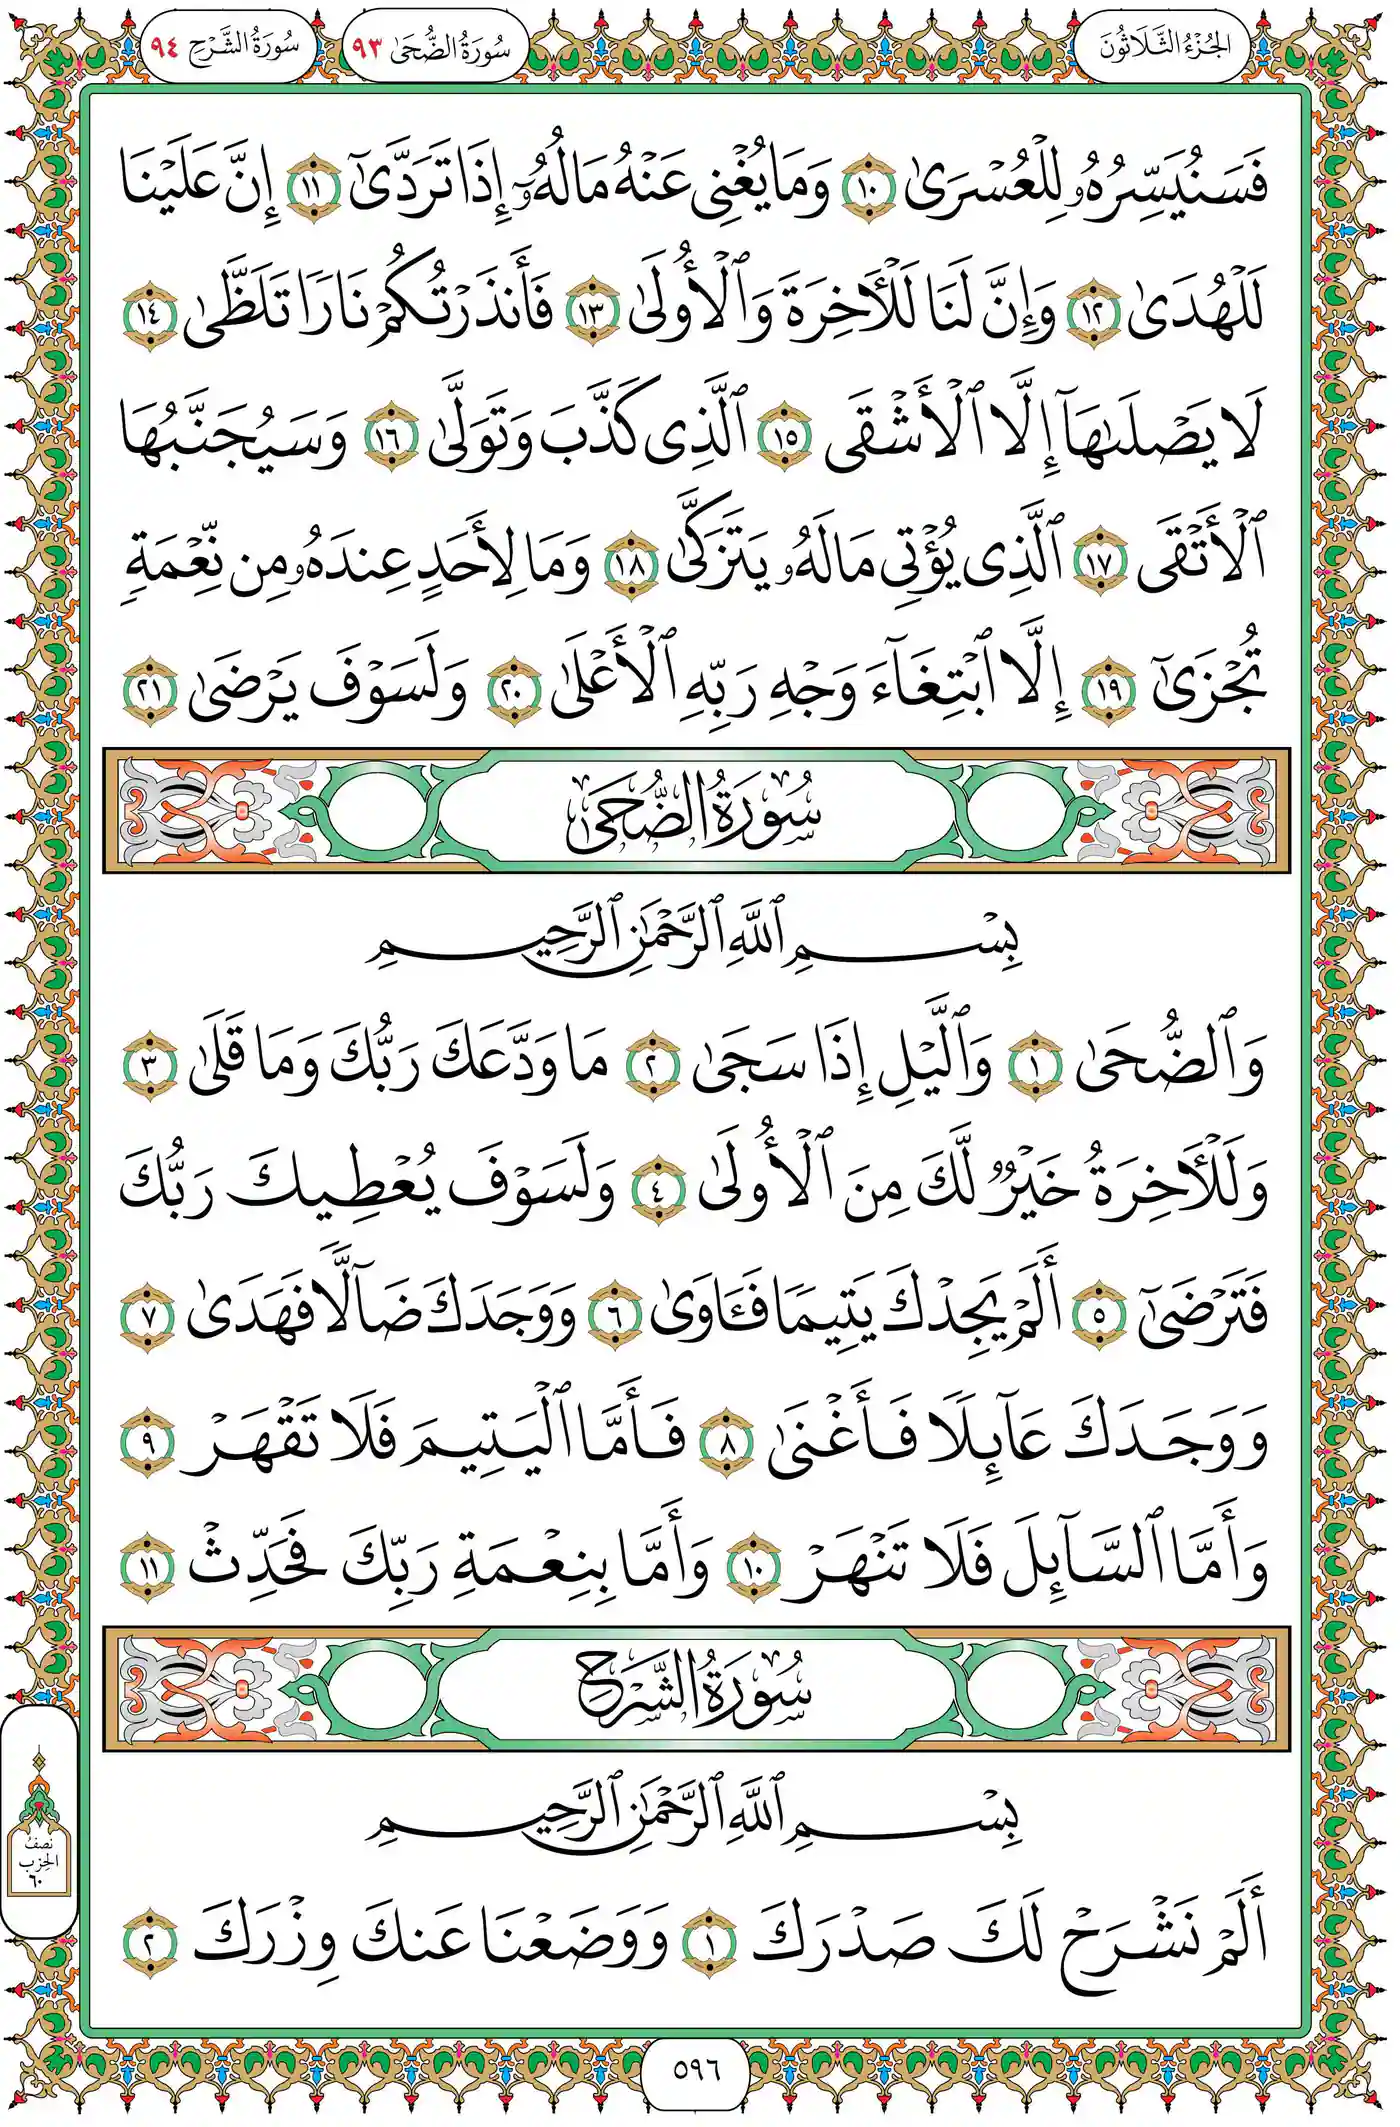 الجُزْءُ الثَّلَاثُونَ
سُورَةُ الضُّحَىٰ ٩٣
سُورَةُ الشَّرْحِ ٩٤
فَسَنُيَسِّرُهُۥ لِلْعُسْرَىٰ ١٠ وَمَا يُغْنِى عَنْهُ مَالُهُۥٓ إِذَا تَرَدَّىٰٓ ١١ إِنَّ عَلَيْنَا
لَلْهُدَىٰ ١٢ وَإِنَّ لَنَا لَلْـَٔاخِرَةَ وَٱلْأُولَىٰ ١٣ فَأَنذَرْتُكُمْ نَارًا تَلَظَّىٰ ١٤
لَا يَصْلَىٰهَآ إِلَّا ٱلْأَشْقَى ١٥ ٱلَّذِى كَذَّبَ وَتَوَلَّىٰ ١٦ وَسَيُجَنَّبُهَا
ٱلْأَتْقَى ١٧ ٱلَّذِى يُؤْتِى مَالَهُۥ يَتَزَكَّىٰ ١٨ وَمَا لِأَحَدٍ عِندَهُۥ مِن نِّعْمَةٍ
تُجْزَىٰٓ ١٩ إِلَّا ٱبْتِغَآءَ وَجْهِ رَبِّهِ ٱلْأَعْلَىٰ ٢٠ وَلَسَوْفَ يَرْضَىٰ ٢١
سُورَةُ الضُّحَىٰ
بِسْمِ ٱللَّهِ ٱلرَّحْمَٰنِ ٱلرَّحِيمِ
وَٱلضُّحَىٰ ١ وَٱلَّيْلِ إِذَا سَجَىٰ ٢ مَا وَدَّعَكَ رَبُّكَ وَمَا قَلَىٰ ٣
وَلَلْـَٔاخِرَةُ خَيْرٌ لَّكَ مِنَ ٱلْأُولَىٰ ٤ وَلَسَوْفَ يُعْطِيكَ رَبُّكَ
فَتَرْضَىٰٓ ٥ أَلَمْ يَجِدْكَ يَتِيمًا فَـَٔاوَىٰ ٦ وَوَجَدَكَ ضَآلًّا فَهَدَىٰ ٧
وَوَجَدَكَ عَآئِلًا فَأَغْنَىٰ ٨ فَأَمَّا ٱلْيَتِيمَ فَلَا تَقْهَرْ ٩
وَأَمَّا ٱلسَّآئِلَ فَلَا تَنْهَرْ ١٠ وَأَمَّا بِنِعْمَةِ رَبِّكَ فَحَدِّثْ ١١
سُورَةُ الشَّرْحِ
بِسْمِ ٱللَّهِ ٱلرَّحْمَٰنِ ٱلرَّحِيمِ
أَلَمْ نَشْرَحْ لَكَ صَدْرَكَ ١ وَوَضَعْنَا عَنكَ وِزْرَكَ ٢
نصفُ
الحِزب
٦٠
٥٩٦